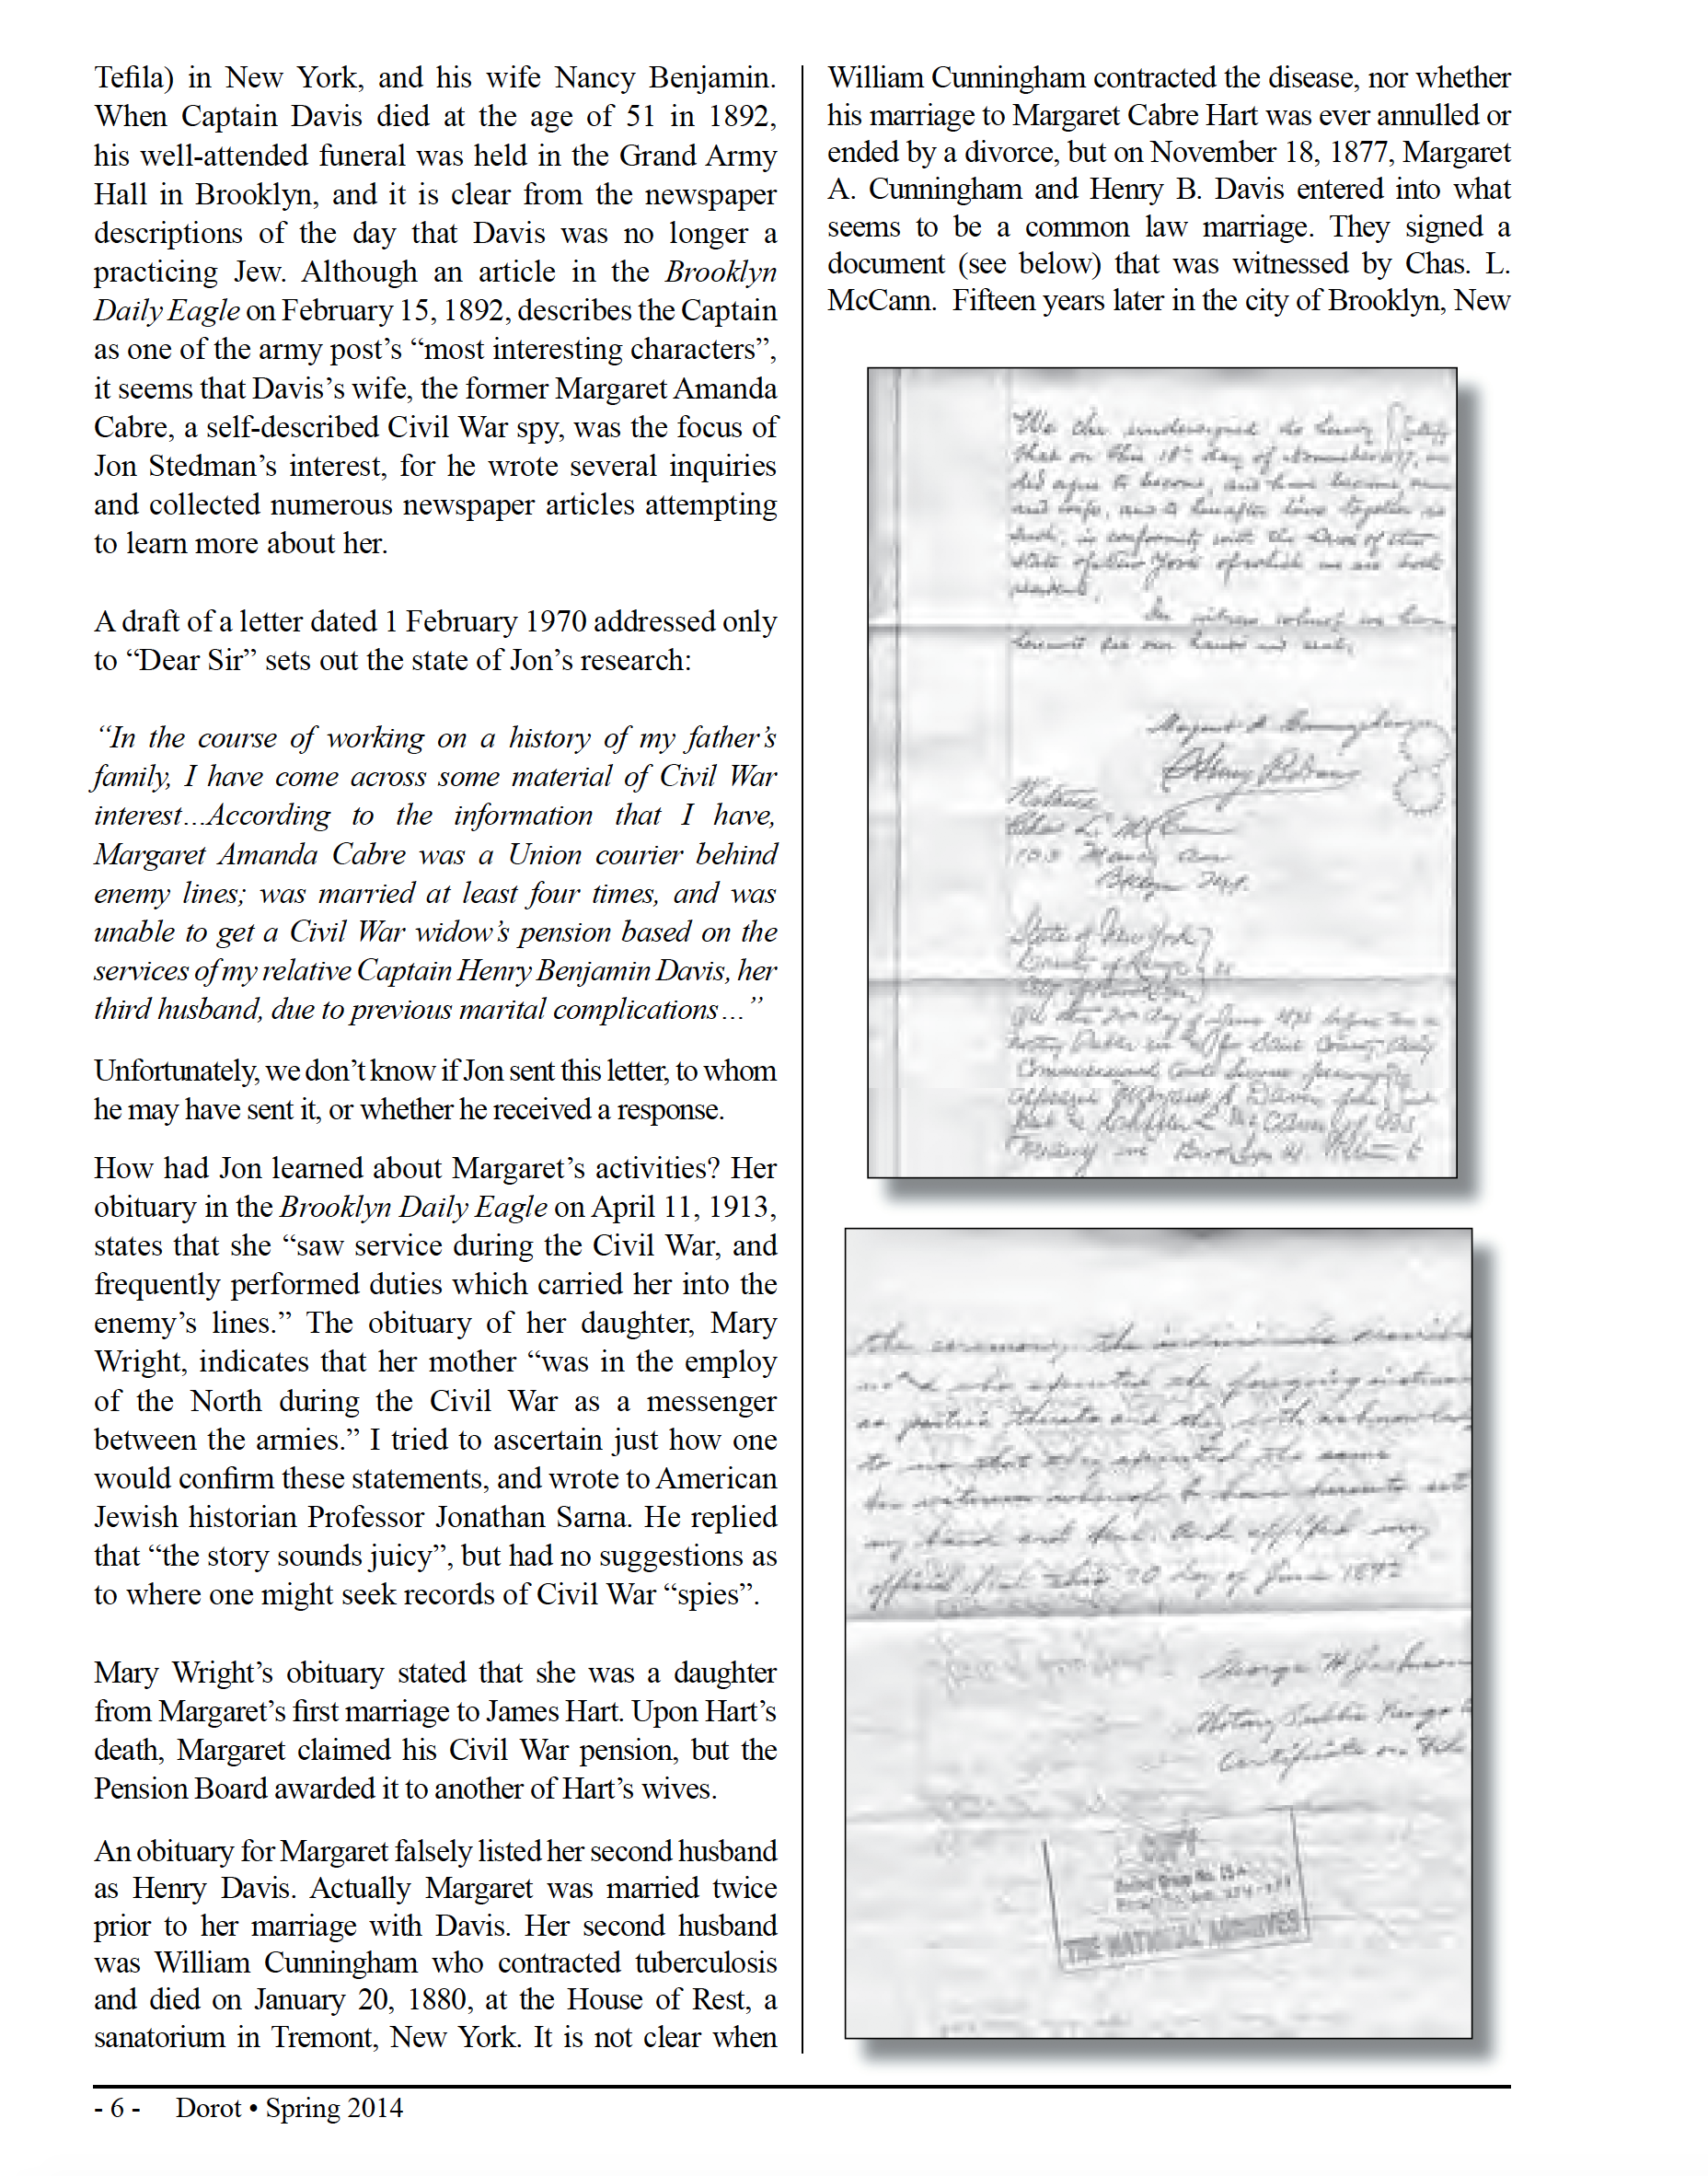 Tefila) in New York, and his wife Nancy Benjamin.
When Captain Davis died at the age of 51 in 1892,
his well-attended funeral was held in the Grand Army
Hall in Brooklyn, and it is clear from the newspaper
descriptions of the day that Davis was no longer a
practicing Jew. Although an article in the Brooklyn
Daily Eagle on February 15, 1892, describes the Captain
as one of the army post’s “most interesting characters”,
it seems that Davis’s wife, the former Margaret Amanda
Cabre, a self-described Civil War spy, was the focus of
Jon Stedman’s interest, for he wrote several inquiries
and collected numerous newspaper articles attempting
to learn more about her.
A draft of a letter dated 1 February 1970 addressed only
to “Dear Sir” sets out the state of Jon’s research:
“In the course of working on a history of my father’s
family, I have come across some material of Civil War
interest…According to the information that I have,
Margaret Amanda Cabre was a Union courier behind
enemy lines; was married at least four times, and was
unable to get a Civil War widow’s pension based on the
services of my relative Captain Henry Benjamin Davis, her
third husband, due to previous marital complications…”
Unfortunately, we don’t know if Jon sent this letter, to whom
he may have sent it, or whether he received a response.
How had Jon learned about Margaret’s activities? Her
obituary in the Brooklyn Daily Eagle on April 11, 1913,
states that she “saw service during the Civil War, and
frequently performed duties which carried her into the
enemy’s lines.” The obituary of her daughter, Mary
Wright, indicates that her mother “was in the employ
of the North during the Civil War as a messenger
between the armies.” I tried to ascertain just how one
would confirm these statements, and wrote to American
Jewish historian Professor Jonathan Sarna. He replied
that “the story sounds juicy”, but had no suggestions as
to where one might seek records of Civil War “spies”.
Mary Wright’s obituary stated that she was a daughter
from Margaret’s first marriage to James Hart. Upon Hart’s
death, Margaret claimed his Civil War pension, but the
Pension Board awarded it to another of Hart’s wives.
An obituary for Margaret falsely listed her second husband
as Henry Davis. Actually Margaret was married twice
prior to her marriage with Davis. Her second husband
was William Cunningham who contracted tuberculosis
and died on January 20, 1880, at the House of Rest, a
sanatorium in Tremont, New York. It is not clear when
William Cunningham contracted the disease, nor whether
his marriage to Margaret Cabre Hart was ever annulled or
ended by a divorce, but on November 18, 1877, Margaret
A. Cunningham and Henry B. Davis entered into what
seems to be a common law marriage. They signed a
document (see below) that was witnessed by Chas. L.
McCann. Fifteen years later in the city of Brooklyn, New
We the undersigned do hereby
that on this 18th day of November
did agree to become, and have become, man
and wife, and to hereafter live together as
such, in conformity with the Laws of the
State of New York of which we are both
residents.
In witness whereof we have
hereunto set our hands and seals.
Margaret A. Cunningham
Henry B Davis
Witness
Chas L. McCann
103
State of New York
County of Kings
day of June
Notary Public in
Margaret A. Davis
Brooklyn
the ceremony, the individuals
who executed the foregoing
as parties thereto and they both
to me that they executed the same
In witness whereof I have hereunto set
my hand and seal. And affixed my
official seal this 20 day of June 1892
George W
Notary Public Kings
Certificate on
THE NATIONAL ARCHIVES
- 6 - Dorot • Spring 2014